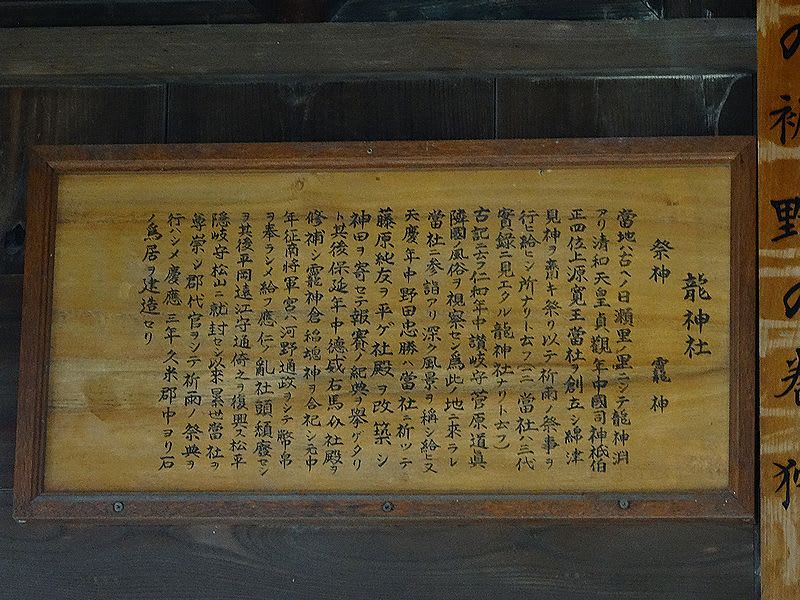 龍神社
祭神　靇神
當地ハ古ヘノ日瀬里ノ里ニシテ龍神渕
アリ清和天皇貞觀年中國司神祇伯
正四位上源寛王當社ヲ創立シ綿津
見神ヲ斎キ祭リ以テ祈雨ノ祭事ヲ
行ヒ給ヒシ所ナリト云フ(三當社ハ三代
實録ニ見エタル龍神社ナリト云フ)
古記ニ云フ仁和年中讃岐守菅原道眞
隣國ノ風俗ヲ視察セン爲此地ニ來ラレ
當社ニ参詣アリ深ク風景ヲ稱シ給ヒ又
天慶年中野田忠勝ハ當社ニ祈ツテ
藤原純友ヲ平ゲ社殿ヲ改築シ
神田ヲ寄セテ報賽ノ紀典ヲ擧ゲタリ
ト其後保延年中德威右馬介社殿ヲ
修補シ靇神倉稲魂神ヲ合祀シ元中
年征南將軍宮ハ河野通政ヲシテ幣帛
ヲ奉ランメ給フ應仁ノ亂社頭頽廢セシ
ヲ其後平岡遠江守通倚之ヲ復興ス松平
隠岐守松山ニ就封セシ以来累世當社ヲ
尊崇シ郡代官ヲシテ祈雨ノ祭典ヲ
行ハシメ慶應三年久米郡中ヨリ石
ノ鳥居ヲ建造セリ
の
野
の